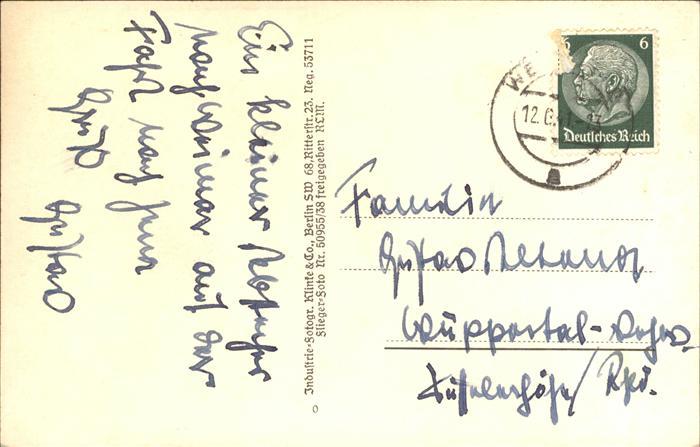 Ein kleiner Abstecher
nach Weimar auf der
Fahrt nach Jena
Gruß
Gustav
Industrie-Fotogr. Klinke & Co., Berlin SW 68, Ritterstr. 23. Neg. 53711
Flieger-Foto Nr. 50955/38 freigegeben RLM.
6 6
Deutsches Reich
WE
12.6.
a
Familie
Gustav
Wuppertal-